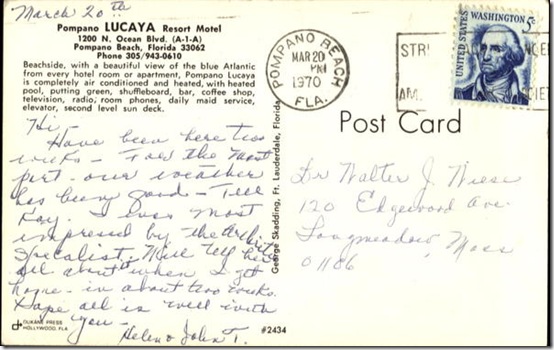 March 20th
Pompano LUCAYA Resort Motel
1200 N. Ocean Blvd. (A-1-A)
Pompano Beach, Florida 33062
Phone 305/943-0610
Beachside, with a beautiful view of the blue Atlantic
from every hotel room or apartment, Pompano Lucaya
is completely air conditioned and heated, with heated
pool, putting green, shuffleboard, bar, coffee shop,
television, radio, room phones, daily maid service,
elevator, second level sun deck.
Hi,
Have been here two
weeks - For the most
part - our weather
has been good -
Day. I was most
impressed by the
Specialist. Will tell
all about when I get
home - in about two weeks.
Hope all is well with
you -
Helen & John T.
DUKANE PRESS
HOLLYWOOD, FLA
#2434
George Skadding, Ft. Lauderdale, Florida
POMPANO BEACH
MAR 20
PM
1970
FLA.
UNITED STATES
WASHINGTON 5c
Post Card
Dr Walter J. Wiese
120 Edgewood Ave.
Longmeadow, Mass
01106